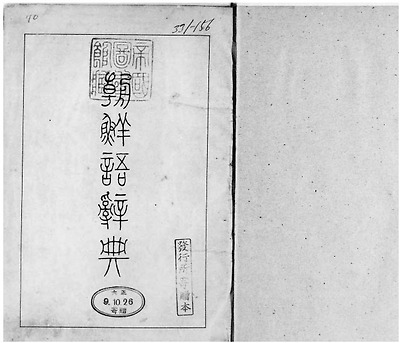 70
331-156
帝國
圖書
館藏
朝鮮語辭典
發行所寄贈本
大正
9.10.26
寄贈